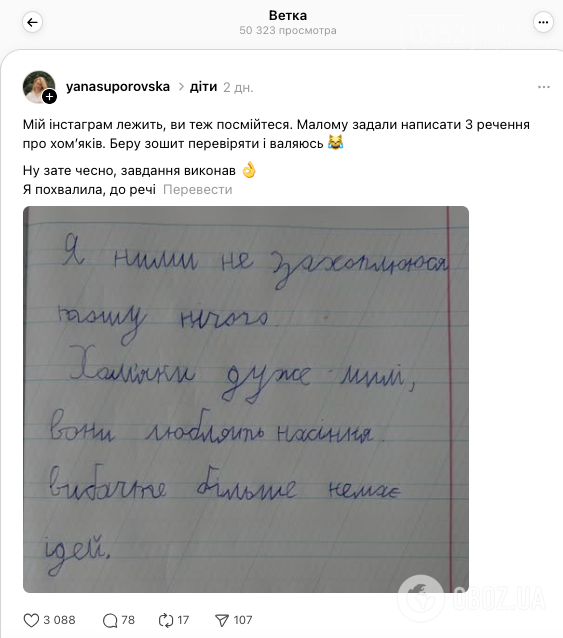 Ветка
50 323 просмотра
yanasuporovska > діти 2 дн.
Мій інстаграм лежить, ви теж посмійтеся. Малому задали написати 3 речення
про хом’яків. Беру зошит перевіряти і валяюсь 😹
Ну зате чесно, завдання виконав 👌
Я похвалила, до речі Перевести
Я ними не захоплююся
тошу нічого.
Хом'яки дуже милі,
вони люблять насіння.
вибачте більше немає
ідей.
3 088 78 17 107
OBOZ.UA